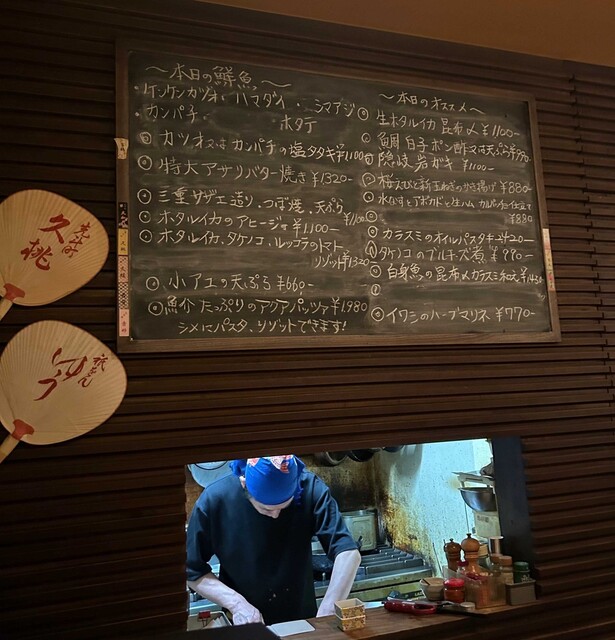 〜本日の鮮魚〜
・ケンケンカツオ・ハマダイ・シマアジ
・カンパチ ホタテ
カツオ又はカンパチの塩タタキ¥1100
特大アサリバター焼き¥1320-
三重サザエ造り、つぼ焼、天ぷら
ホタルイカのアヒージョ¥1100-
ホタルイカ、タケノコ、ルッコラのトマト
リゾット¥1320
小アユの天ぷら¥660-
魚介たっぷりのアクアパッツァ¥1,980
シメにパスタ、リゾットできます!
〜本日のオススメ〜
生ホタルイカ昆布〆¥1100-
鯛白子ポン酢又は天ぷら¥990-
隠岐岩ガキ¥1100-
桜えびと新玉ねぎのかき揚げ¥880-
水なすとアボカドと生ハムカルパッチョ仕立て
¥880
カラスミのオイルパスタ
タケノコのアルキーズ煮¥990-
白身魚の昆布〆カラスミ和え
イワシのハーブマリネ¥770-
久桃
祇をん